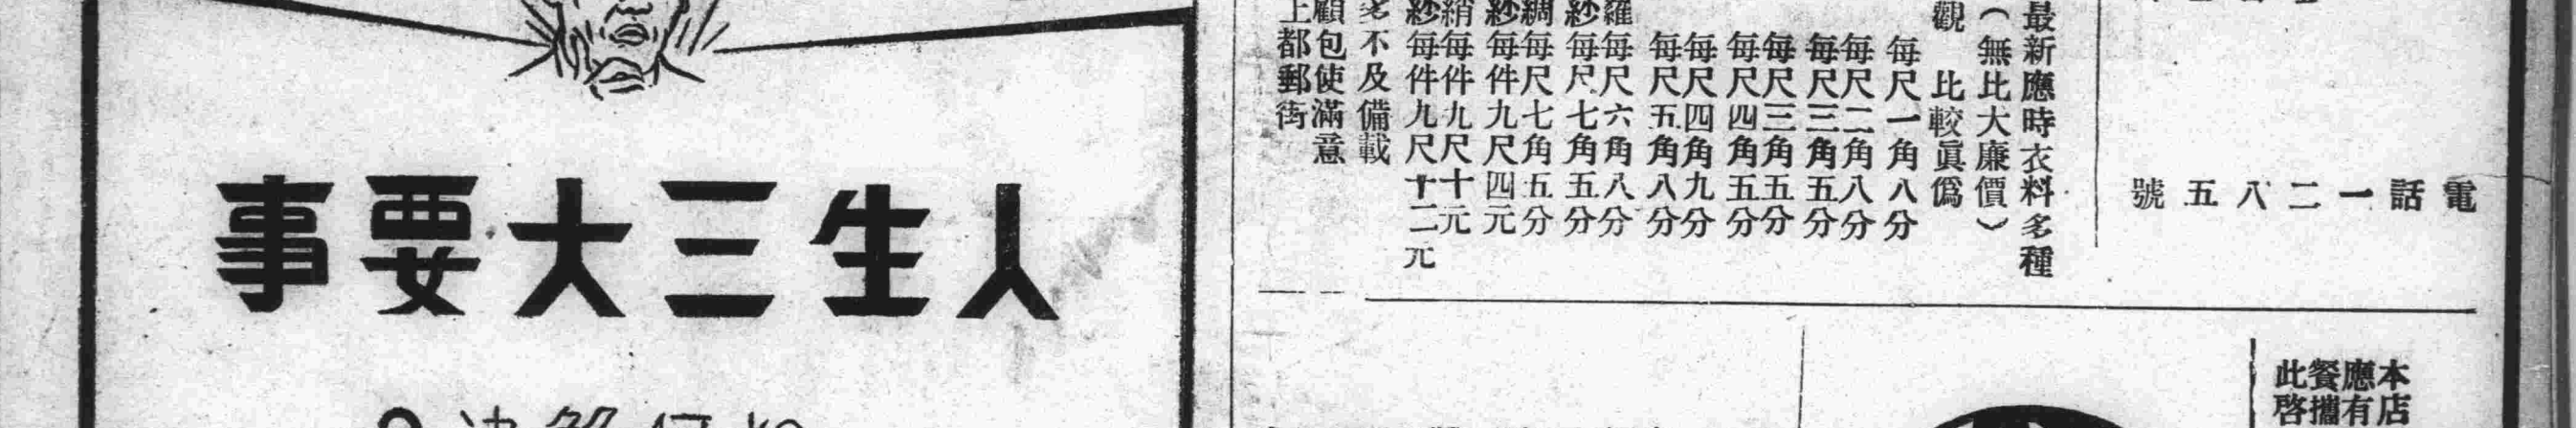 電話一二八五號
最新應時衣料多種
（無比大廉價）
觀　比較眞僞
每尺一角八分
每尺二角八分
每尺三角五分
每尺三角五分
每尺四角五分
每尺四角九分
每尺五角八分
羅每尺六角八分
紗每尺七角五分
綢每尺七角五分
紗每件九尺四元
綃每件九尺十元
紗每件九尺十二元
多不及備載
顧包使滿意
上都郵街
人生三大要事
本店
應有
餐攜
此啓